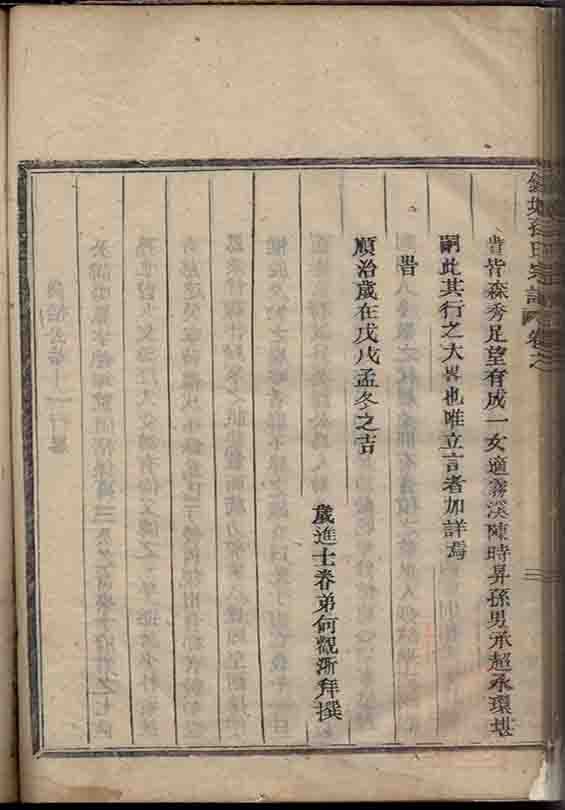 氏宗譜 卷之
皆森秀足望有成一女適霧溪陳時昇孫男承超承環堪
嗣此其行之大畧也唯立言者加詳焉
旹
順治歲在戊戌孟冬之吉
歲進士眷弟何觀漸拜撰